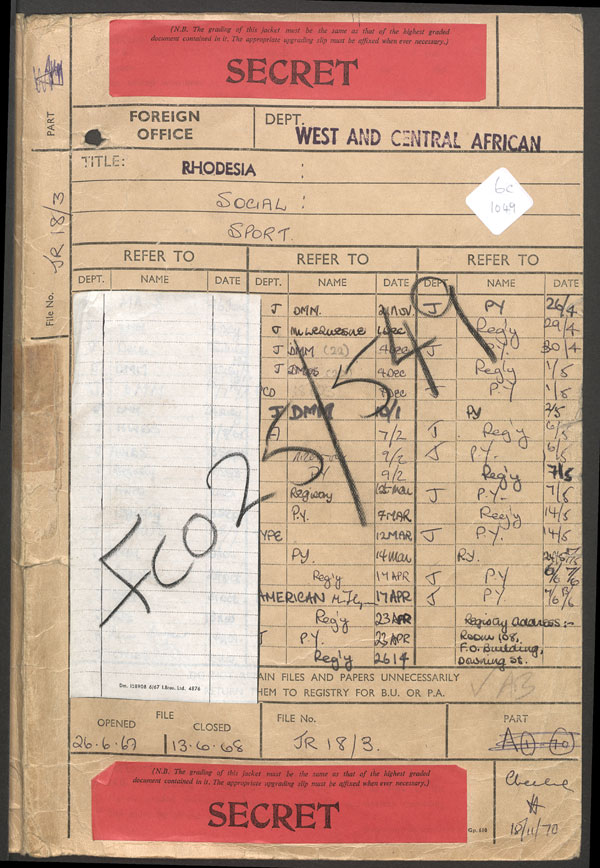 (N.B. The grading of this jacket must be the same as that of the highest graded
document contained in it. The appropriate upgrading slip must be affixed when ever necessary.)
SECRET
PART
FOREIGN
OFFICE
DEPT.
WEST AND CENTRAL AFRICAN
TITLE:
RHODESIA :
SOCIAL :
SPORT.
6c
1049
File No. JR 18/3
REFER TO REFER TO REFER TO
DEPT. NAME DATE DEPT. NAME DATE DEPT. NAME DATE
J DMM. 21 Nov. J PY 26/4
J 1 Dec Reg'y 29/4
J DMM (22) 4 Dec J P.Y. 30/4
J 4 Dec Reg'y 1/5
CO Dec J P.Y 1/5
J DMM 10/1 PY 2/5
7/2 J Reg'y 6/5
9/2 J P.Y. 6/5
PY 9/2 Reg'y 7/5
Regway J P.Y. 7/5
P.Y. 7 MAR Reg'y 14/5
YPE 12 MAR J P.Y. 14/5
PY. 14 Mar P.Y.
Reg'y 17 APR J PY 7/6
AMERICAN 17 APR J PY
Reg'y 23 APR Registry address:-
J P.Y. 23 APR Room 108,
F.O. Building,
Reg'y 26/4 Downing St.
FCO 25/541
Dm. 158908 6/67 I.Bros. Ltd. 4876
AIN FILES AND PAPERS UNNECESSARILY
HEM TO REGISTRY FOR B.U. OR P.A.
FILE
OPENED CLOSED
26.6.67 13.6.68
FILE No.
JR 18/3.
PART
A (1-70)
(N.B. The grading of this jacket must be the same as that of the highest graded
document contained in it. The appropriate upgrading slip must be affixed when ever necessary.)
SECRET
Gp. 610
18/11/70